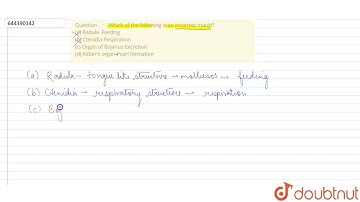 644390142
Question Which of the following is an incorrect match?
(a) Radula- Feeding
(b) Ctenidia-Respiration
(c) Organ of Bojanus-Excretion
(d) Keber's organ-Pearl formation
(a) Radula → tongue like structure → molluscs → feeding
(b) Ctenidia → respiratory structure → respiration
(c) Boj
doubtnut